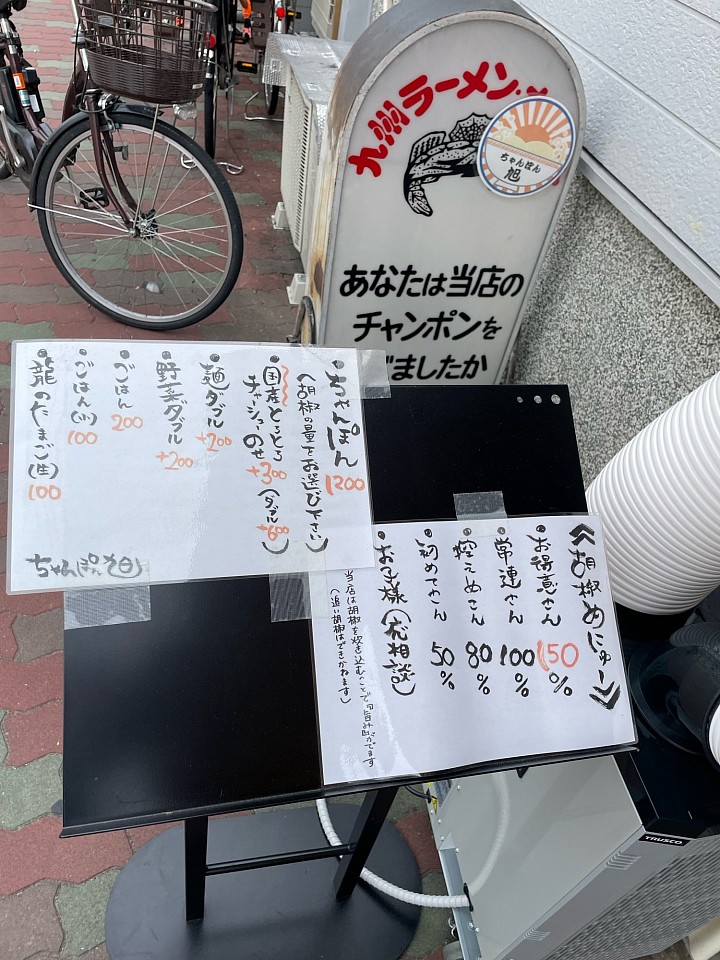 九州ラーメン
ちゃんぽん
旭
あなたは当店の
チャンポンを
ましたか
・ちゃんぽん 1200
(胡椒の量をお選び下さい)
・国産とろとろ
チャーシューのせ +300 (ダブル +600)
・麺ダブル +200
・野菜ダブル +200
・ごはん 200
・ごはん(小) 100
・龍のたまご(生) 100
ちゃんぽん旭
《胡椒めにゅー》
・お得意さん 150%
・常連さん 100%
・控えめさん 80%
・初めてさん 50%
・お子様(応相談)
当店は胡椒を炊き込むことで旨みがでます
(追い胡椒はできかねます)
TRUSCO